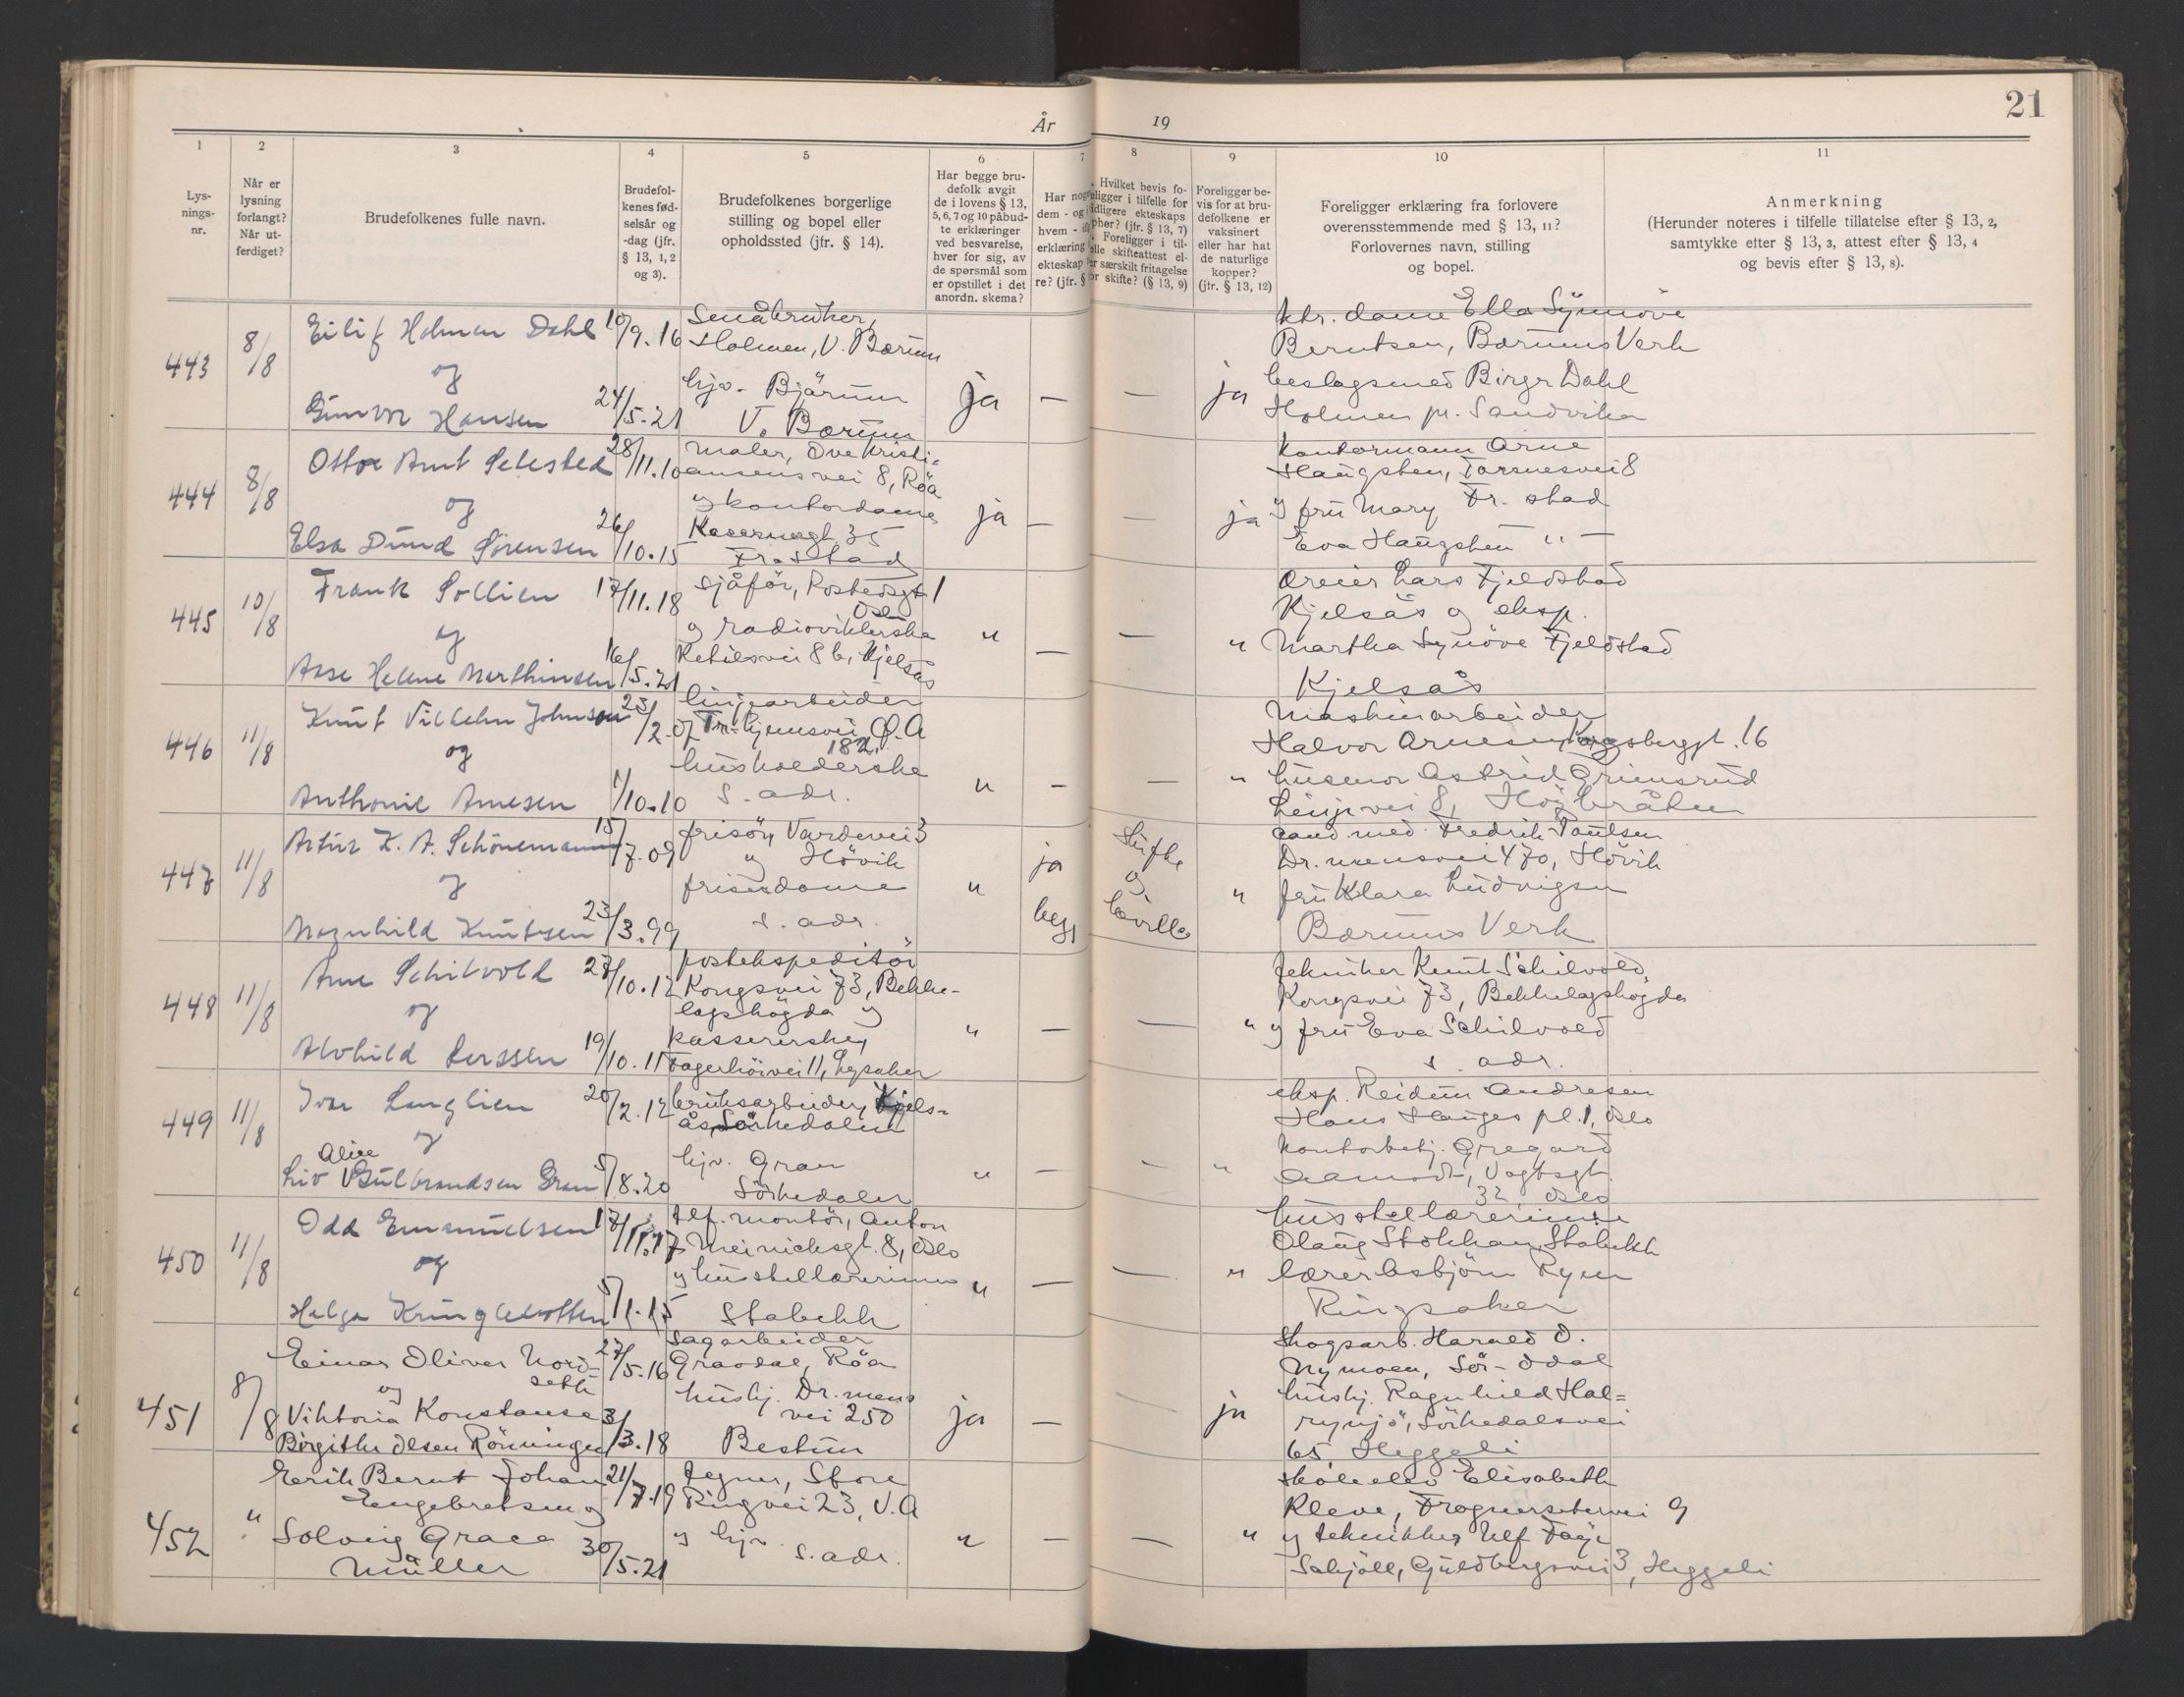 År 19
21
1
2
3
4
5
6
7
8
9
10
11
Lys-
nings-
nr.
Når er
lysning
forlangt?
Når ut-
ferdiget?
Brudefolkenes fulle navn.
Brudefol-
kenes fød-
selsår og
-dag (jfr.
§ 13, 1, 2
og 3).
Brudefolkenes borgerlige
stilling og bopel eller
opholdssted (jfr. § 14).
Har begge bru-
defolk avgit
de i lovens § 13,
5, 6, 7 og 10 påbud-
te erklæringer
ved besvarelse,
hver for sig, av
de spørsmål som
er opstillet i det
anordn. skema?
Har noge
dem - og i
hvem -
erklæring
ekteskap
re? (jfr. §
Hvilket bevis fo-
religger i tilfelle for
tidligere ekteskaps
opher? (jfr. § 13, 7)
Foreligger i til-
felle skifteattest el-
ler særskilt fritagelse
for skifte? (§ 13, 9)
Foreligger be-
vis for at bru-
defolkene er
vaksinert
eller har hat
de naturlige
kopper?
(jfr. § 13, 12)
Foreligger erklæring fra forlovere
overensstemmende med § 13, 11?
Forlovernes navn, stilling
og bopel.
Anmerkning
(Herunder noteres i tilfelle tillatelse efter § 13, 2,
samtykke etter § 13, 3, attest efter § 13, 4
og bevis efter § 13, 8).
443 8/8
Eilif Holmen Dahl 10/9.16
og
Gunvor Hansen 24/5.21
Småbruker,
Holmen, V. Bærum
hjv. Bjärum
V. Bærum
ja — — ja
ktr. dame Ella Synnöve
Berntsen, Bærums Verk
beslagsmed Birger Dahl
Holmen pr. Sandvika
444 8/8
Arnt Sehested 28/11.10
og
Elsa Dund Sørensen 26/10.15
maler, Ove Kristi=
ansens vei 8, Röa
og kontordame
Kasernegt. 35
Fr.stad
ja — — ja
Kontormann Arne
Haugsten, Torsnesvei 8
Fr. stad
og fru Mary
Eva Haugsten " —
445 10/8
Frank Sollien 17/11.18
og
Aase Helene Marthinsen 16/5.21
sjåför, 1
Oslo
og radioviklerske
Ketilsvei 8 b, Kjelsås
" — — "
Lars Fjeldstad
Kjelsås og eksp.
Martha Synöve Fjeldstad
Kjelsås
446 11/8
Knut Vilhelm Johnsen 23/2.07
og
Anthonie Arnesen 1/10.10
linjearbeider
Tr.hjemsvei, Ø.A
182,
husholderske
s. adr.
" — — "
Maskinarbeider
Halvor Arnesen, 16
husmor Astrid Grimsrud
vei 8, Höybråten
447 11/8
Artur K. A. Schönemann 15/7.09
og
Magnhild Knutsen 23/3.99
frisör, Vardevei 3
og Hövik
friserdame
s. adr.
" ja
begge
Skifte
og
bevilla
"
cand. med. Fredrik Poulsen
Dr.mensvei 470, Hövik
fru Klara Ludvigsen
Bærums Verk
448 11/8
Arne Schilvold 27/10.12
og
Alvhild Lerssen 19/10.11
postekspeditör
Kongsvei 73, Bekke-
lagshögda og
kassererske,
Fagerhöivei 11, Lysaker
" — — "
tekniker Knut Schilvold,
Kongsvei 73, Bekkelagshögda
og fru Eva Schilvold
s. adr.
449 11/8
Ivar Langlien 20/2.12
og
Alice
Liv Gulbrandsen Gran 5/8.20
bruksarbeider, Kjels-
ås, Sörkedalen
hjv. Gran
Sörkedalen
" — — "
eksp. Reidun Andresen
Hans Hauges pl. 1, Oslo
Kontorbetj. Gregard
Aamodt, Vogtsgt.
32 Oslo
450 11/8
Odd Emanuelsen 17/11.17
og
Helga Kringlebotten 5/1.15
tlf. montör, Anton
Meinichsgt. 8, Oslo
og husstellærerinne
Stabekk
" — — "
husstellærerinne
Olaug Stokkan, Stabekk
lærer Asbjörn Ryen
Ringsaker
451 8/8
Einar Oliver Nord-
seth 27/5.16
og
Viktoria Konstanse
Birgithe Olsen Rönningen 3/3.18
Sagarbeider
Grasdal, Röa
hushj. Dr.mens
vei 250
Bestum
ja — — ja
Skogsarb. Harald O.
Nymoen, Sör-Odal
hushj. Ragnhild Hal=
rynjö, Sörkedalsvei
65, Heggeli
452 "
Erik Bernt Johan 21/7.19
Engebretsen og
Solveig Grace 30/5.21
Müller
tegner, Store
Ringvei 23, V.A
og hjv.
s. adr.
" — — "
skoleelev Elisabeth
Kleve, Frognerseterv ei 9
og tekniker Ulf Faye
Sahjöll, Guldbergsvei 3, Heggeli